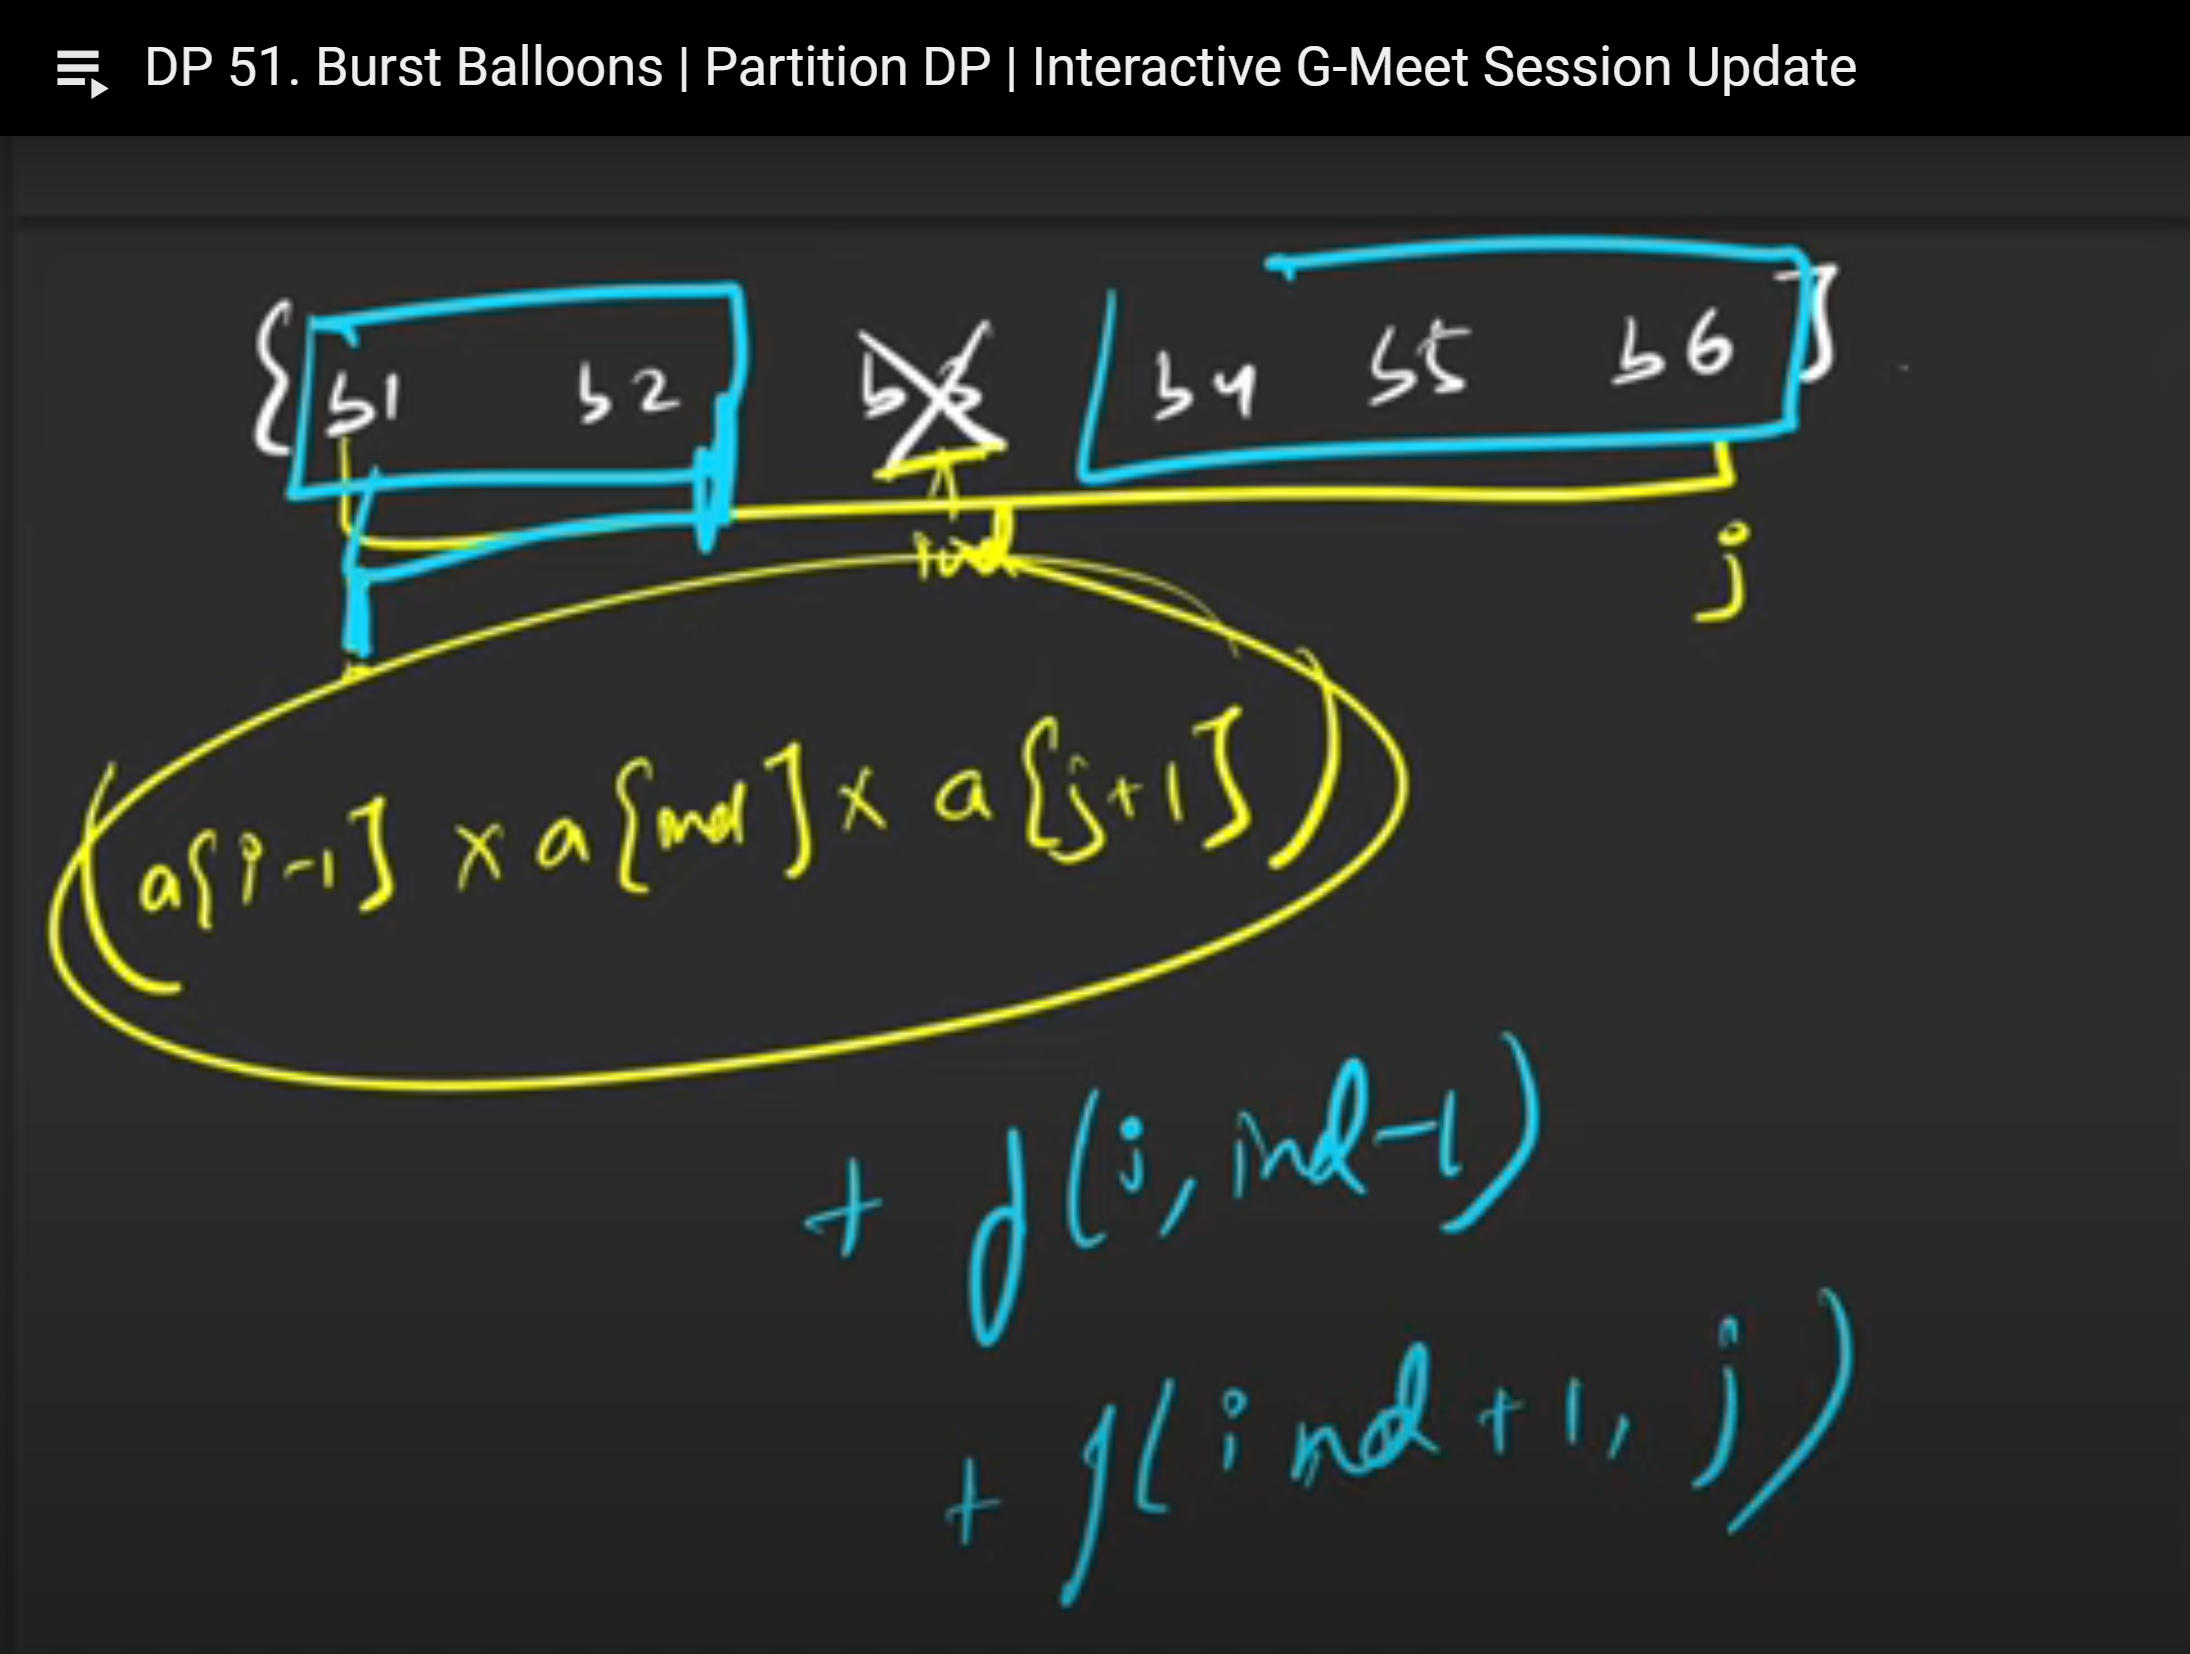 DP 51. Burst Balloons | Partition DP | Interactive G-Meet Session Update
[b1 b2 b3 b4 b5 b6]
ind j
(a[i-1] x a[ind] x a[j+1])
+ f(i, ind-1)
+ f(ind+1, j)